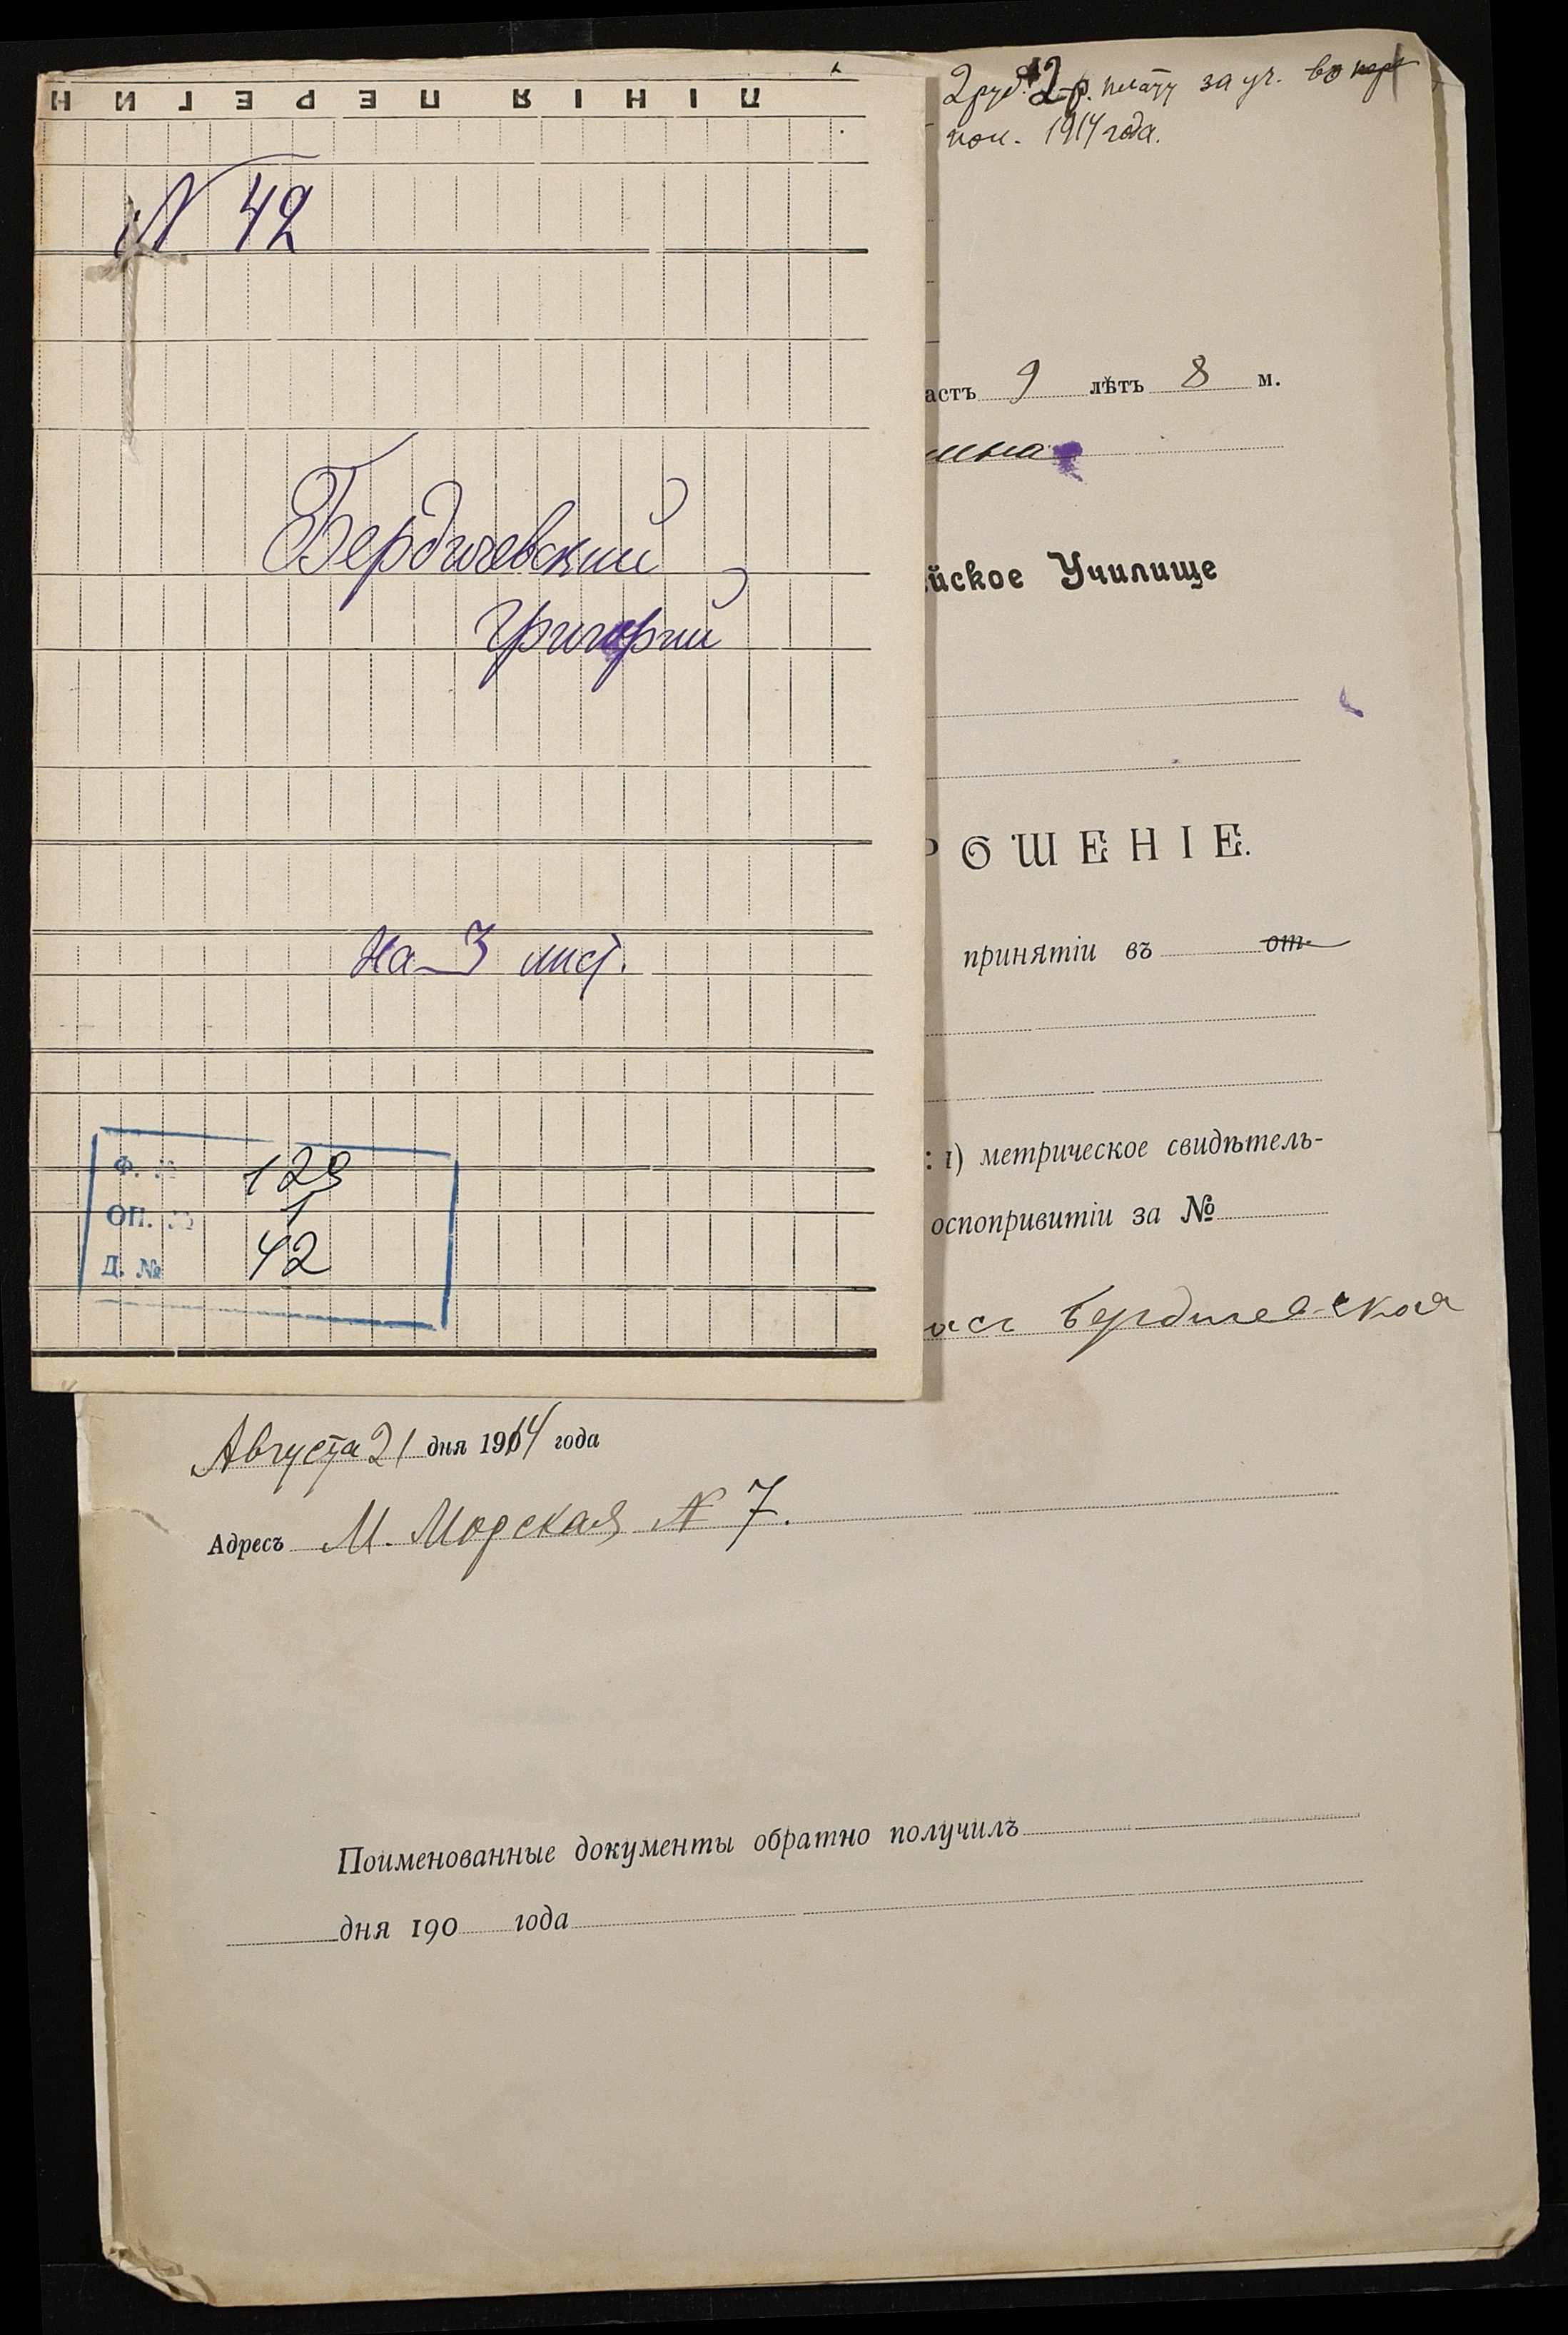 ЛІНІЯ ПЕРЕГИН
N 42
Бердичевский
Григорий
На 3 лист.
Ф. № 129
ОП. № 1
Д. № 42
2 руб. 2 р. плату за уч. во
пол. 1914 года.
астъ 9 лѣтъ 8 м.
йское Училище
РОШЕНІЕ.
принятіи въ от-
: 1) метрическое свидѣтель-
оспопривитіи за №
Бердичевская
Августа 21 дня 1914 года
Адресъ М. Морская N 7.
Поименованные документы обратно получилъ
дня 190 года